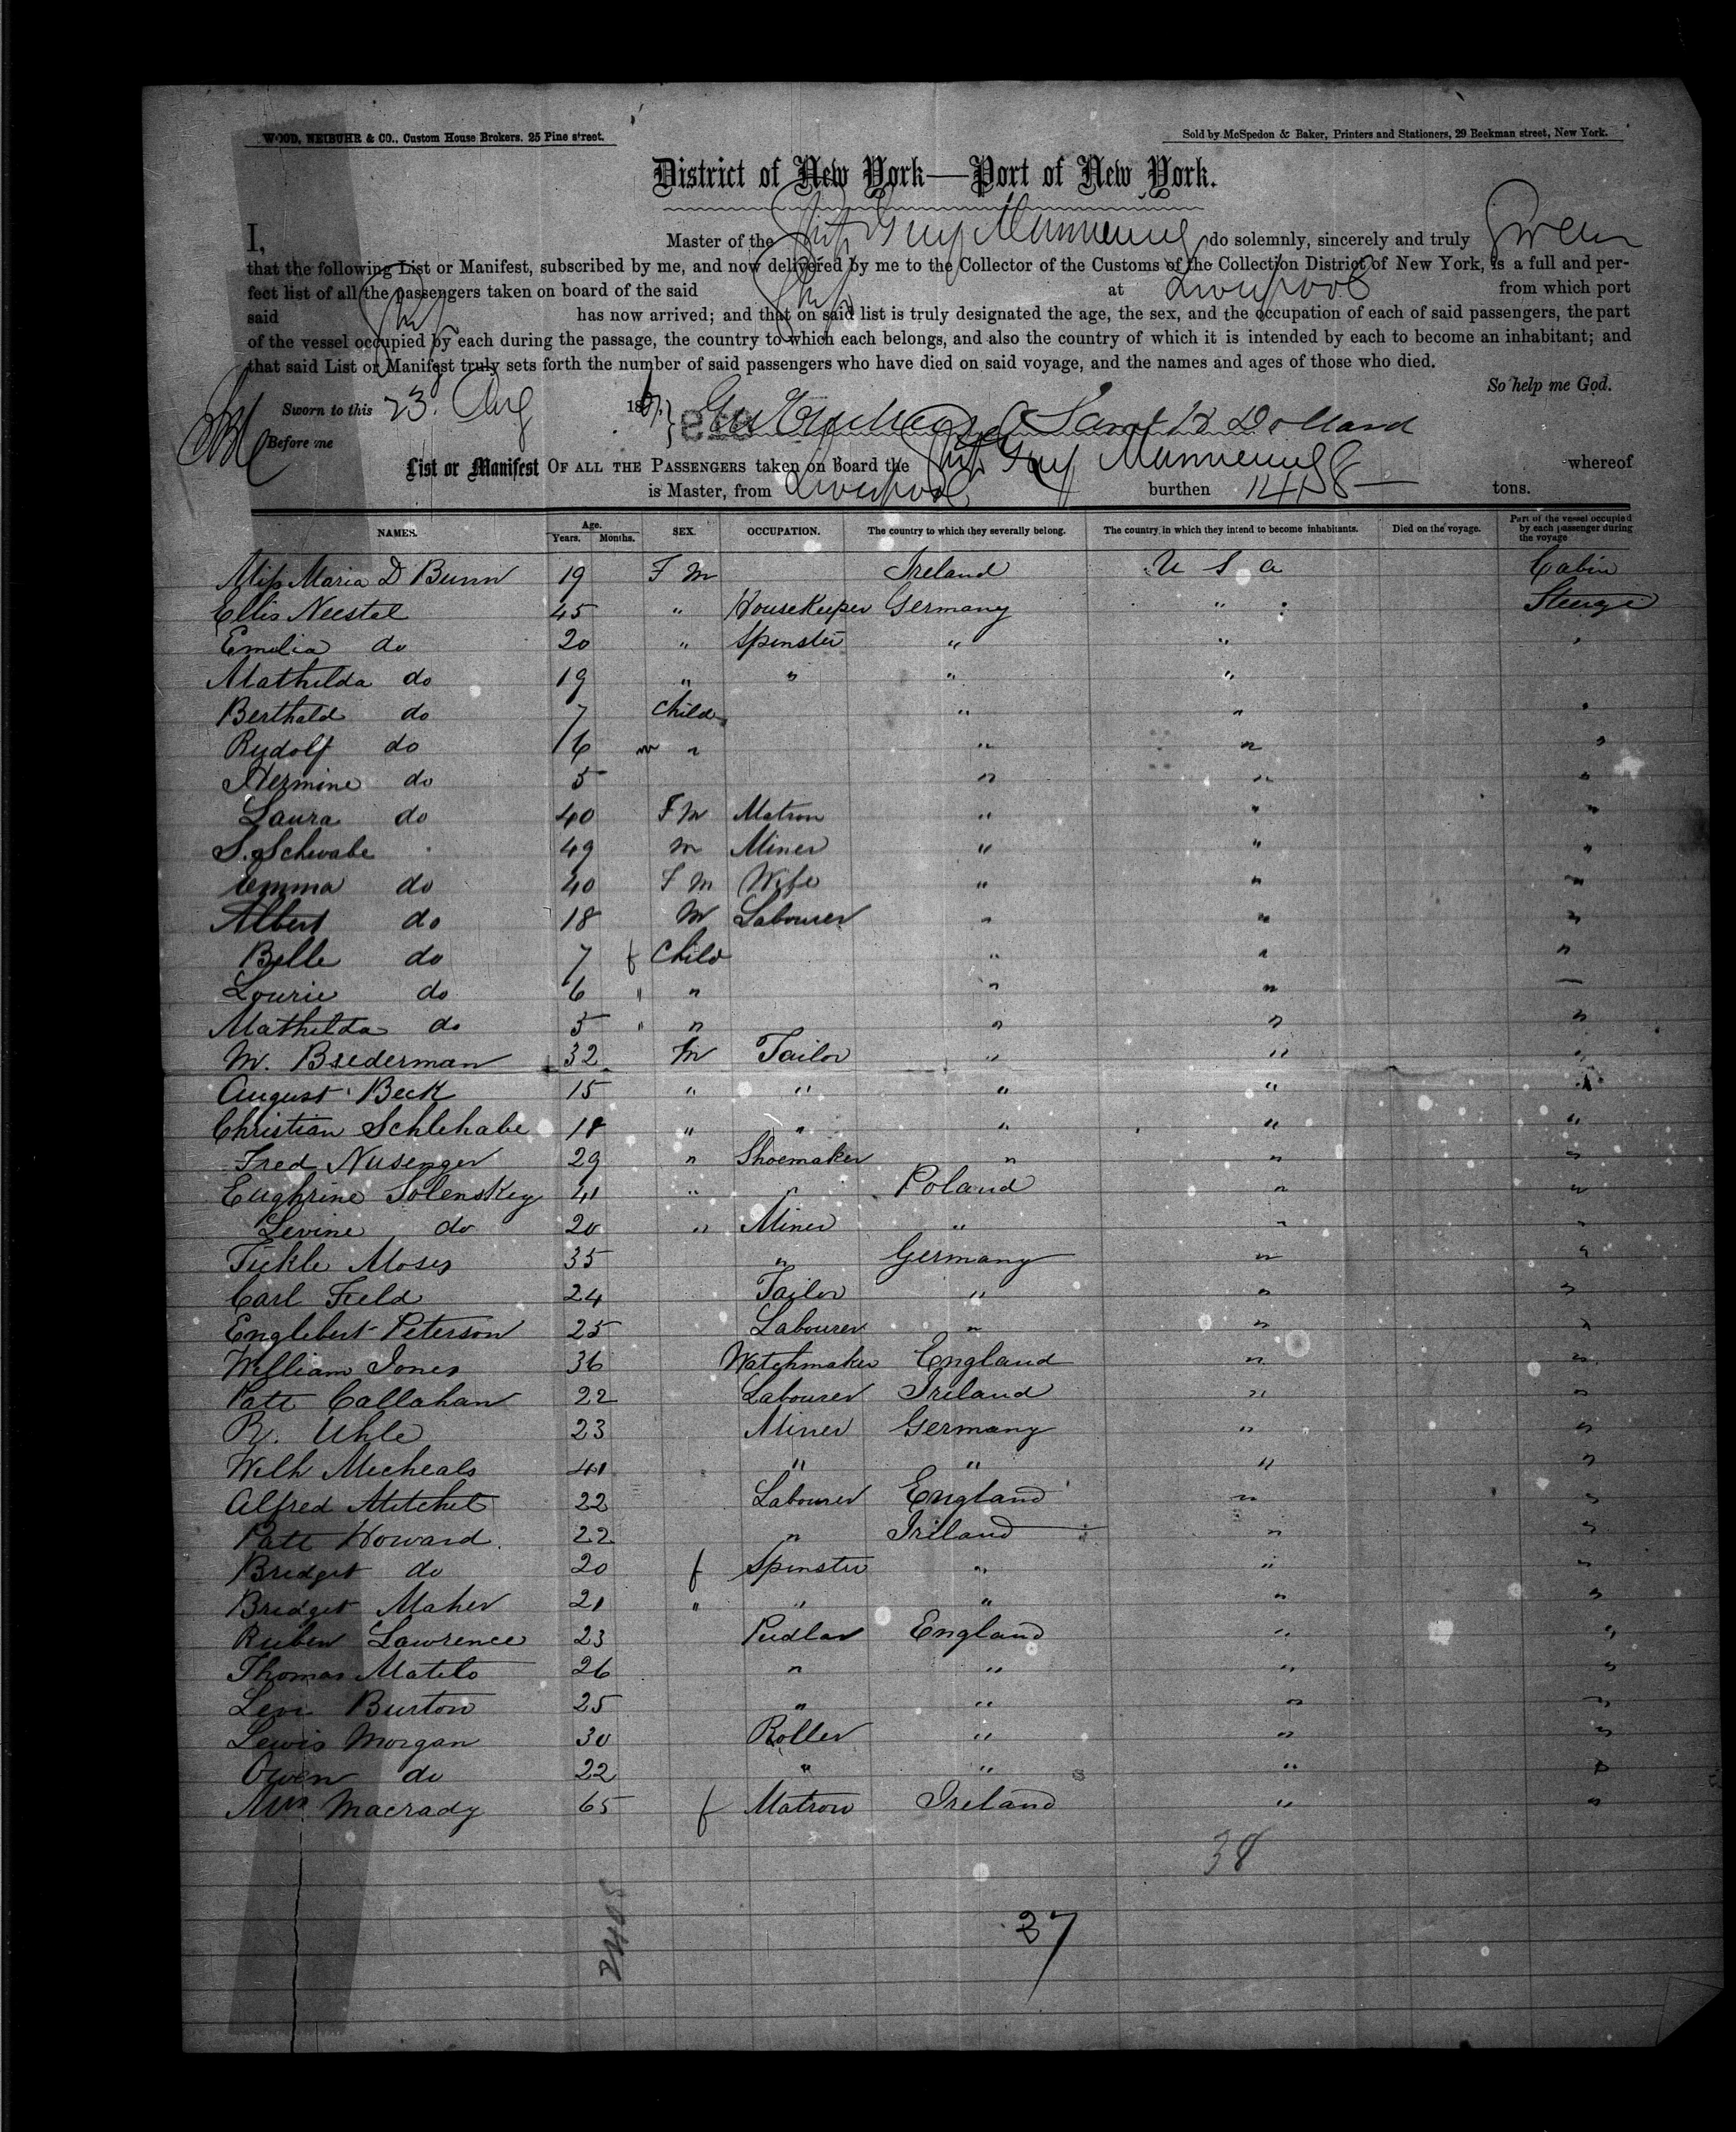 WOOD, NEIBUHR & CO., Custom House Brokers. 25 Pine street.
Sold by McSpedon & Baker, Printers and Stationers, 29 Beekman street, New York.
District of New York—Port of New York.
I, Master of the Ship Guy Mannering do solemnly, sincerely and truly Swear
that the following List or Manifest, subscribed by me, and now delivered by me to the Collector of the Customs of the Collection District of New York, is a full and per-
fect list of all the passengers taken on board of the said Ship at Liverpool from which port
said Ship has now arrived; and that on said list is truly designated the age, the sex, and the occupation of each of said passengers, the part
of the vessel occupied by each during the passage, the country to which each belongs, and also the country of which it is intended by each to become an inhabitant; and
that said List or Manifest truly sets forth the number of said passengers who have died on said voyage, and the names and ages of those who died.
So help me God.
Sworn to this 23. Aug 186 Dollard
Before me
List or Manifest OF ALL THE PASSENGERS taken on Board the Ship Guy Mannering whereof
is Master, from Liverpool burthen 1418 — tons.
NAMES. Age. Years. Months. SEX. OCCUPATION. The country to which they severally belong. The country in which they intend to become inhabitants. Died on the voyage. Part of the vessel occupied by each passenger during the voyage
Miss Maria D Bunn 19 F M Ireland U S a Cabin
Ellis Neestel 45 " HouseKeeper Germany " Steerge
Emilia do 20 " Spinster " " "
Mathilda do 19 " " " "
Berthald do 7 Child " " "
Rudolf do 16 m " " " "
Hermine do 5 " " "
Laura do 40 F M Matron " " "
S. Schwabe 49 m Miner " " "
Emma do 40 F M Wife " " "
Albert do 18 M Labourer " " "
Belle do 7 f Child " " "
Lourie do 6 " " " " —
Mathilda do 5 " " " " "
M. Brederman 32 M Tailor " " "
August Beck 15 " " " " "
Christian Schlehabe 18 " " " " "
Fred Nusenger 29 " Shoemaker " " "
Eughrine Solenskey 41 " " Poland " "
Levine do 20 " Miner " " "
Tickle Moses 35 " Germany " "
Carl Field 24 Tailor " " "
Englebert Peterson 25 Labourer " " "
William Jones 36 Watchmaker England " "
Patt Callahan 22 Labourer Ireland " "
R. Uhle 23 Miner Germany " "
Wilh Micheals 41 " " " "
Alfred Mitchel 22 Labourer England " "
Patt Howard 22 " Ireland " "
Bridget do 20 f Spinster " " "
Bridget Maher 21 " " " " "
Ruben Lawrence 23 Pudlar England " "
Thomas Matelo 26 " " " "
Levi Burton 25 " " " "
Lewis Morgan 30 Roller " " "
Owen do 22 " " " "
Mrs Macrady 65 f Matron Ireland " "
38
37
2405